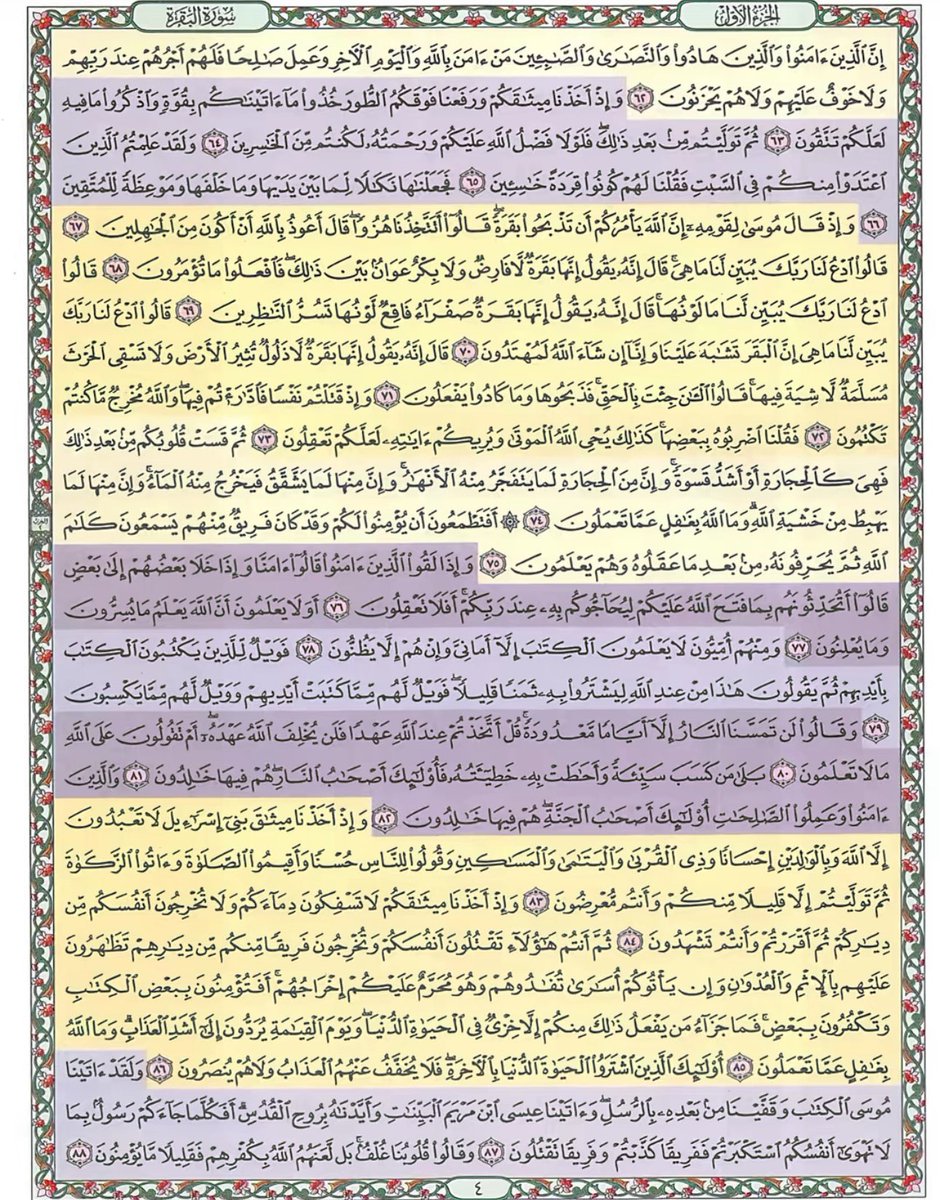 الجزء الأول
سورة البقرة
إِنَّ ٱلَّذِينَ ءَامَنُوا۟ وَٱلَّذِينَ هَادُوا۟ وَٱلنَّصَٰرَىٰ وَٱلصَّٰبِـِٔينَ مَنْ ءَامَنَ بِٱللَّهِ وَٱلْيَوْمِ ٱلْءَاخِرِ وَعَمِلَ صَٰلِحًا فَلَهُمْ أَجْرُهُمْ عِندَ رَبِّهِمْ
وَلَا خَوْفٌ عَلَيْهِمْ وَلَا هُمْ يَحْزَنُونَ ٦٢ وَإِذْ أَخَذْنَا مِيثَٰقَكُمْ وَرَفَعْنَا فَوْقَكُمُ ٱلطُّورَ خُذُوا۟ مَآ ءَاتَيْنَٰكُم بِقُوَّةٍ وَٱذْكُرُوا۟ مَا فِيهِ
لَعَلَّكُمْ تَتَّقُونَ ٦٣ ثُمَّ تَوَلَّيْتُم مِّنۢ بَعْدِ ذَٰلِكَ ۖ فَلَوْلَا فَضْلُ ٱللَّهِ عَلَيْكُمْ وَرَحْمَتُهُۥ لَكُنتُم مِّنَ ٱلْخَٰسِرِينَ ٦٤ وَلَقَدْ عَلِمْتُمُ ٱلَّذِينَ
ٱعْتَدَوْا۟ مِنكُمْ فِى ٱلسَّبْتِ فَقُلْنَا لَهُمْ كُونُوا۟ قِرَدَةً خَٰسِـِٔينَ ٦٥ فَجَعَلْنَٰهَا نَكَٰلًا لِّمَا بَيْنَ يَدَيْهَا وَمَا خَلْفَهَا وَمَوْعِظَةً لِّلْمُتَّقِينَ
٦٦ وَإِذْ قَالَ مُوسَىٰ لِقَوْمِهِۦٓ إِنَّ ٱللَّهَ يَأْمُرُكُمْ أَن تَذْبَحُوا۟ بَقَرَةً ۖ قَالُوٓا۟ أَتَتَّخِذُنَا هُزُوًا ۖ قَالَ أَعُوذُ بِٱللَّهِ أَنْ أَكُونَ مِنَ ٱلْجَٰهِلِينَ ٦٧
قَالُوا۟ ٱدْعُ لَنَا رَبَّكَ يُبَيِّن لَّنَا مَا هِىَ ۚ قَالَ إِنَّهُۥ يَقُولُ إِنَّهَا بَقَرَةٌ لَّا فَارِضٌ وَلَا بِكْرٌ عَوَانٌۢ بَيْنَ ذَٰلِكَ ۖ فَٱفْعَلُوا۟ مَا تُؤْمَرُونَ ٦٨ قَالُوا۟
ٱدْعُ لَنَا رَبَّكَ يُبَيِّن لَّنَا مَا لَوْنُهَا ۚ قَالَ إِنَّهُۥ يَقُولُ إِنَّهَا بَقَرَةٌ صَفْرَآءُ فَاقِعٌ لَّوْنُهَا تَسُرُّ ٱلنَّٰظِرِينَ ٦٩ قَالُوا۟ ٱدْعُ لَنَا رَبَّكَ
يُبَيِّن لَّنَا مَا هِىَ إِنَّ ٱلْبَقَرَ تَشَٰبَهَ عَلَيْنَا وَإِنَّآ إِن شَآءَ ٱللَّهُ لَمُهْتَدُونَ ٧٠ قَالَ إِنَّهُۥ يَقُولُ إِنَّهَا بَقَرَةٌ لَّا ذَلُولٌ تُثِيرُ ٱلْأَرْضَ وَلَا تَسْقِى ٱلْحَرْثَ
مُسَلَّمَةٌ لَّا شِيَةَ فِيهَا ۚ قَالُوا۟ ٱلْـَٰٔنَ جِئْتَ بِٱلْحَقِّ ۚ فَذَبَحُوهَا وَمَا كَادُوا۟ يَفْعَلُونَ ٧١ وَإِذْ قَتَلْتُمْ نَفْسًا فَٱدَّٰرَْٰٔتُمْ فِيهَا ۖ وَٱللَّهُ مُخْرِجٌ مَّا كُنتُمْ
تَكْتُمُونَ ٧٢ فَقُلْنَا ٱضْرِبُوهُ بِبَعْضِهَا ۚ كَذَٰلِكَ يُحْىِ ٱللَّهُ ٱلْمَوْتَىٰ وَيُرِيكُمْ ءَايَٰتِهِۦ لَعَلَّكُمْ تَعْقِلُونَ ٧٣ ثُمَّ قَسَتْ قُلُوبُكُم مِّنۢ بَعْدِ ذَٰلِكَ
فَهِىَ كَٱلْحِجَارَةِ أَوْ أَشَدُّ قَسْوَةً ۚ وَإِنَّ مِنَ ٱلْحِجَارَةِ لَمَا يَتَفَجَّرُ مِنْهُ ٱلْأَنْهَٰرُ ۚ وَإِنَّ مِنْهَا لَمَا يَشَّقَّقُ فَيَخْرُجُ مِنْهُ ٱلْمَآءُ ۚ وَإِنَّ مِنْهَا لَمَا
يَهْبِطُ مِنْ خَشْيَةِ ٱللَّهِ ۗ وَمَا ٱللَّهُ بِغَٰفِلٍ عَمَّا تَعْمَلُونَ ٧٤ ۞ أَفَتَطْمَعُونَ أَن يُؤْمِنُوا۟ لَكُمْ وَقَدْ كَانَ فَرِيقٌ مِّنْهُمْ يَسْمَعُونَ كَلَٰمَ
ٱللَّهِ ثُمَّ يُحَرِّفُونَهُۥ مِنۢ بَعْدِ مَا عَقَلُوهُ وَهُمْ يَعْلَمُونَ ٧٥ وَإِذَا لَقُوا۟ ٱلَّذِينَ ءَامَنُوا۟ قَالُوٓا۟ ءَامَنَّا وَإِذَا خَلَا بَعْضُهُمْ إِلَىٰ بَعْضٍ
قَالُوٓا۟ أَتُحَدِّثُونَهُم بِمَا فَتَحَ ٱللَّهُ عَلَيْكُمْ لِيُحَآجُّوكُم بِهِۦ عِندَ رَبِّكُمْ ۚ أَفَلَا تَعْقِلُونَ ٧٦ أَوَلَا يَعْلَمُونَ أَنَّ ٱللَّهَ يَعْلَمُ مَا يُسِرُّونَ
وَمَا يُعْلِنُونَ ٧٧ وَمِنْهُمْ أُمِّيُّونَ لَا يَعْلَمُونَ ٱلْكِتَٰبَ إِلَّآ أَمَانِىَّ وَإِنْ هُمْ إِلَّا يَظُنُّونَ ٧٨ فَوَيْلٌ لِّلَّذِينَ يَكْتُبُونَ ٱلْكِتَٰبَ
بِأَيْدِيهِمْ ثُمَّ يَقُولُونَ هَٰذَا مِنْ عِندِ ٱللَّهِ لِيَشْتَرُوا۟ بِهِۦ ثَمَنًا قَلِيلًا ۖ فَوَيْلٌ لَّهُم مِّمَّا كَتَبَتْ أَيْدِيهِمْ وَوَيْلٌ لَّهُم مِّمَّا يَكْسِبُونَ
٧٩ وَقَالُوا۟ لَن تَمَسَّنَا ٱلنَّارُ إِلَّآ أَيَّامًا مَّعْدُودَةً ۚ قُلْ أَتَّخَذْتُمْ عِندَ ٱللَّهِ عَهْدًا فَلَن يُخْلِفَ ٱللَّهُ عَهْدَهُۥٓ ۖ أَمْ تَقُولُونَ عَلَى ٱللَّهِ
مَا لَا تَعْلَمُونَ ٨٠ بَلَىٰ مَن كَسَبَ سَيِّئَةً وَأَحَٰطَتْ بِهِۦ خَطِيٓـَٔتُهُۥ فَأُو۟لَٰٓئِكَ أَصْحَٰبُ ٱلنَّارِ ۖ هُمْ فِيهَا خَٰلِدُونَ ٨١ وَٱلَّذِينَ
ءَامَنُوا۟ وَعَمِلُوا۟ ٱلصَّٰلِحَٰتِ أُو۟لَٰٓئِكَ أَصْحَٰبُ ٱلْجَنَّةِ ۖ هُمْ فِيهَا خَٰلِدُونَ ٨٢ وَإِذْ أَخَذْنَا مِيثَٰقَ بَنِىٓ إِسْرَٰٓءِيلَ لَا تَعْبُدُونَ
إِلَّا ٱللَّهَ وَبِٱلْوَٰلِدَيْنِ إِحْسَانًا وَذِى ٱلْقُرْبَىٰ وَٱلْيَتَٰمَىٰ وَٱلْمَسَٰكِينِ وَقُولُوا۟ لِلنَّاسِ حُسْنًا وَأَقِيمُوا۟ ٱلصَّلَوٰةَ وَءَاتُوا۟ ٱلزَّكَوٰةَ
ثُمَّ تَوَلَّيْتُمْ إِلَّا قَلِيلًا مِّنكُمْ وَأَنتُم مُّعْرِضُونَ ٨٣ وَإِذْ أَخَذْنَا مِيثَٰقَكُمْ لَا تَسْفِكُونَ دِمَآءَكُمْ وَلَا تُخْرِجُونَ أَنفُسَكُم مِّن
دِيَٰرِكُمْ ثُمَّ أَقْرَرْتُمْ وَأَنتُمْ تَشْهَدُونَ ٨٤ ثُمَّ أَنتُمْ هَٰٓؤُلَآءِ تَقْتُلُونَ أَنفُسَكُمْ وَتُخْرِجُونَ فَرِيقًا مِّنكُم مِّن دِيَٰرِهِمْ تَظَٰهَرُونَ
عَلَيْهِم بِٱلْإِثْمِ وَٱلْعُدْوَٰنِ وَإِن يَأْتُوكُمْ أُسَٰرَىٰ تُفَٰدُوهُمْ وَهُوَ مُحَرَّمٌ عَلَيْكُمْ إِخْرَاجُهُمْ ۚ أَفَتُؤْمِنُونَ بِبَعْضِ ٱلْكِتَٰبِ
وَتَكْفُرُونَ بِبَعْضٍ ۚ فَمَا جَزَآءُ مَن يَفْعَلُ ذَٰلِكَ مِنكُمْ إِلَّا خِزْىٌ فِى ٱلْحَيَوٰةِ ٱلدُّنْيَا ۖ وَيَوْمَ ٱلْقِيَٰمَةِ يُرَدُّونَ إِلَىٰٓ أَشَدِّ ٱلْعَذَابِ ۗ وَمَا ٱللَّهُ
بِغَٰفِلٍ عَمَّا تَعْمَلُونَ ٨٥ أُو۟لَٰٓئِكَ ٱلَّذِينَ ٱشْتَرَوُا۟ ٱلْحَيَوٰةَ ٱلدُّنْيَا بِٱلْءَاخِرَةِ ۖ فَلَا يُخَفَّفُ عَنْهُمُ ٱلْعَذَابُ وَلَا هُمْ يُنصَرُونَ ٨٦ وَلَقَدْ ءَاتَيْنَا
مُوسَى ٱلْكِتَٰبَ وَقَفَّيْنَا مِنۢ بَعْدِهِۦ بِٱلرُّسُلِ ۖ وَءَاتَيْنَا عِيسَى ٱبْنَ مَرْيَمَ ٱلْبَيِّنَٰتِ وَأَيَّدْنَٰهُ بِرُوحِ ٱلْقُدُسِ ۗ أَفَكُلَّمَا جَآءَكُمْ رَسُولٌۢ بِمَا
لَا تَهْوَىٰٓ أَنفُسُكُمُ ٱسْتَكْبَرْتُمْ فَفَرِيقًا كَذَّبْتُمْ وَفَرِيقًا تَقْتُلُونَ ٨٧ وَقَالُوا۟ قُلُوبُنَا غُلْفٌۢ ۚ بَل لَّعَنَهُمُ ٱللَّهُ بِكُفْرِهِمْ فَقَلِيلًا مَّا يُؤْمِنُونَ ٨٨
٤